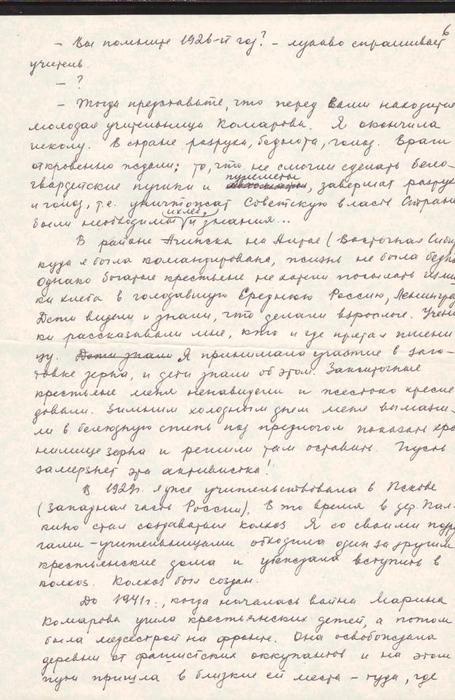 6
– Вы помните 1926-й год? – лукаво спрашивает
учитель.
– ?
– Тогда представьте, что перед Вами находится
молодая учительница Комарова. Я окончила
школу. В стране разруха, беднота, голод. Враги
откровенно ждали; то, что не смогли сделать бело-
гвардейские пушки и пулеметы, завершат разруха
и голод, т.е. уничтожат Советскую власть. Стране
были необходимы хлеб и знания...
В районе Ачинска на Ангаре (Восточная Сиби
куда я была командирована, жизнь не была бедн
Однако богатые крестьяне не хотели посылать излиш
ки хлеба в голодавшую Среднюю Россию, Ленинград
Дети видели и знали, что делали взрослые. Учени
ки рассказывали мне, кто и где прятал пшени
цу. Дети знали Я принимала участие в заго-
товке зерна, и дети знали об этом. Зажиточные
крестьяне меня ненавидели и жестоко пресле
довали. Зимним холодным днем меня вымани-
ли в безлюдную степь под предлогом показать хра
нилище зерна и решили там оставить. Пусть
замерзнет эта активистка!
В 1929г. я уже учительствовала в Пскове
(Западная часть России). В это время в дер. Пал-
кино стал создаваться колхоз. Я со своими подру
гами-учительницами обходила один за другим
крестьянские дома и убеждала вступить в
колхоз. Колхоз был создан.
До 1941г., когда началась война Марина
Комарова учила крестьянских детей, а потом
была медсестрой на фронте. Она освобождала
деревни от фашистских оккупантов и на этом
пути пришла в близкие ей места – туда, где